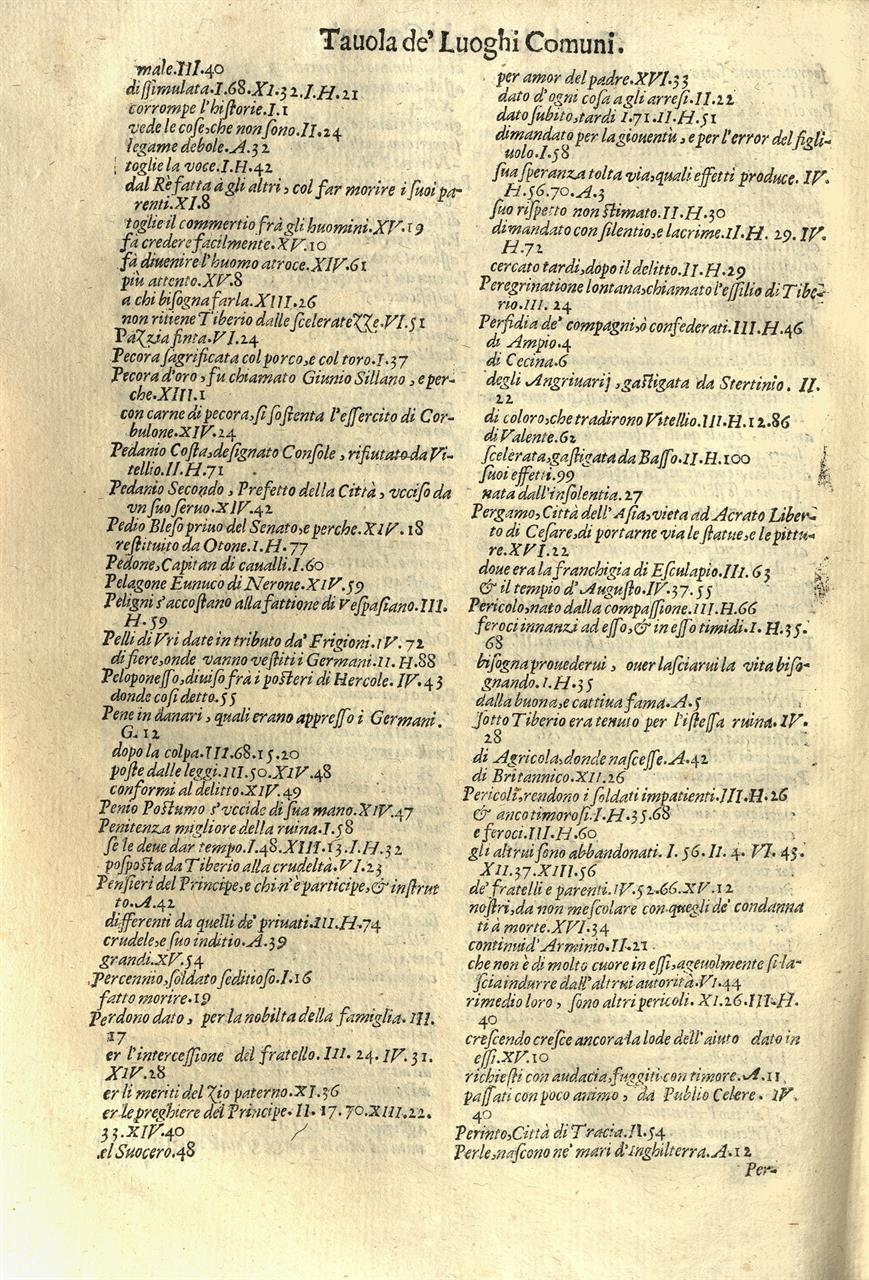 Tauola de' Luoghi Comuni.
male.III.40
dissimulata.I.68.XI.32.I.H.21
corrompe l'historie.I.1
vede le cose,che non sono.II.24
legame debole.A.32
toglie la voce.I.H.42
dal Rè fatta à gli altri, col far morire i suoi pa-
renti.XI.8
toglie il commertio frà gli huomini.XV.19
fà credere facilmente.XV.10
fà diuenire l'huomo atroce.XIV.61
più attento.XV.8
a chi bisogna farla.XIII.26
non ritiene Tiberio dalle sceleratezze.VI.51
Pazzia finta.VI.24
Pecora sagrificata col porco,e col toro.I.37
Pecora d'oro, fu chiamato Giunio Sillano, e per-
che.XIII.1
con carne di pecora, si sostenta l'essercito di Cor-
bulone.XIV.24
Pedanio Costa,designato Console, rifiutato da Vi-
tellio.II.H.71
Pedanio Secondo, Prefetto della Città, vcciso da
vn suo seruo.XIV.42
Pedio Bleso priuo del Senato,e perche.XIV.18
restituito da Otone.I.H.77
Pedone,Capitan di caualli.I.60
Pelagone Eunuco di Nerone.XIV.59
Peligni s'accostano alla fattione di Vespasiano.III.
H.59
Pelli di Vri date in tributo da' Frigioni.IV.72
di fiere,onde vanno vestiti i Germani.II.H.88
Peloponesso,diuiso frà i posteri di Hercole. IV.43
donde cosi detto.55
Pene in danari, quali erano appresso i Germani.
G.12
dopo la colpa.III.68.15.20
poste dalle leggi.III.50.XIV.48
conformi al delitto.XIV.49
Penio Postumo s'vccide di sua mano.XIV.47
Penitenza migliore della ruina.I.58
se le deue dar tempo.I.48.XIII.13.I.H.32
posposta da Tiberio alla crudeltà.VI.23
Pensieri del Principe,e chi n'è participe,& instrut
to.A.42
differenti da quelli de' priuati.III.H.74
crudele,e suo inditio.A.39
grandi.XV.54
Percennio,soldato seditioso.I.16
fatto morire.19
Perdono dato, per la nobilta della famiglia. III.
17
er l'intercessione del fratello.III. 24. IV.31.
XIV.28
er li meriti del zio paterno.XI.36
er le preghiere del Principe.II.17.70.XIII.22.
33.XIV.40
el Suocero.48
per amor del padre.XVI.33
dato d'ogni cosa agli arresi.II.22
dato subito,tardi I.71.II.H.51
dimandato per la giouentù, e per l'error del figli-
uolo.I.58
sua speranza tolta via,quali effetti produce. IV.
H.56.70.A.3
suo rispetto non stimato.II.H.30
dimandato con silentio,e lacrime.II.H. 29. IV.
H.72
cercato tardi,dopo il delitto.II.H.29
Peregrinatione lontana,chiamato l'essilio di Tibe-
rio.III. 24
Perfidia de' compagni,ò confederati.III.H.46
di Ampio.4
di Cecina.6
degli Angriuarij, gastigata da Stertinio. II.
22
di coloro,che tradirono Vitellio.III.H.12.86
di Valente.62
scelerata,gastigata da Basso.II.H.100
suoi effetti.99
nata dall'insolentia.27
Pergamo,Città dell'Asia,vieta ad Acrato Liber-
to di Cesare,di portarne via le statue,e le pittu-
re.XVI.22
doue era la franchigia di Esculapio.III.63
& il tempio d'Augusto.IV.37.55
Pericolo,nato dalla compassione.III.H.66
feroci innanzi ad esso,& in esso timidi.I.H.35.
68
bisogna prouederui, ouer lasciarui la vita biso-
gnando.I.H.35
dalla buona,e cattiua fama.A.5
sotto Tiberio era tenuto per l'istessa ruina.IV.
28
di Agricola,donde nascesse.A.42
di Britannico.XII.26
Pericoli,rendono i soldati impatienti.III.H.26
& anco timorosi.I.H.35.68
e feroci.III.H.60
gli altrui sono abbandonati. I. 56. II. 4. VI. 45.
XII.37.XIII.56
de' fratelli e parenti.IV.52.66.XV.12
nostri,da non mescolare con quegli de' condanna
ti à morte.XVI.34
continui d'Arminio.II.21
che non è di molto cuore in essi,ageuolmente si la-
scia indurre dall'altrui autorità.VI.44
rimedio loro, sono altri pericoli. XI.26.III.H.
40
crescendo cresce ancora la lode dell'aiuto dato in
essi.XV.10
richiesti con audacia,fuggiti con timore.A.11
passati con poco animo, da Publio Celere. IV.
40
Perinto,Città di Tracia.II.54
Perle,nascono ne' mari d'Inghilterra.A.12
Per-